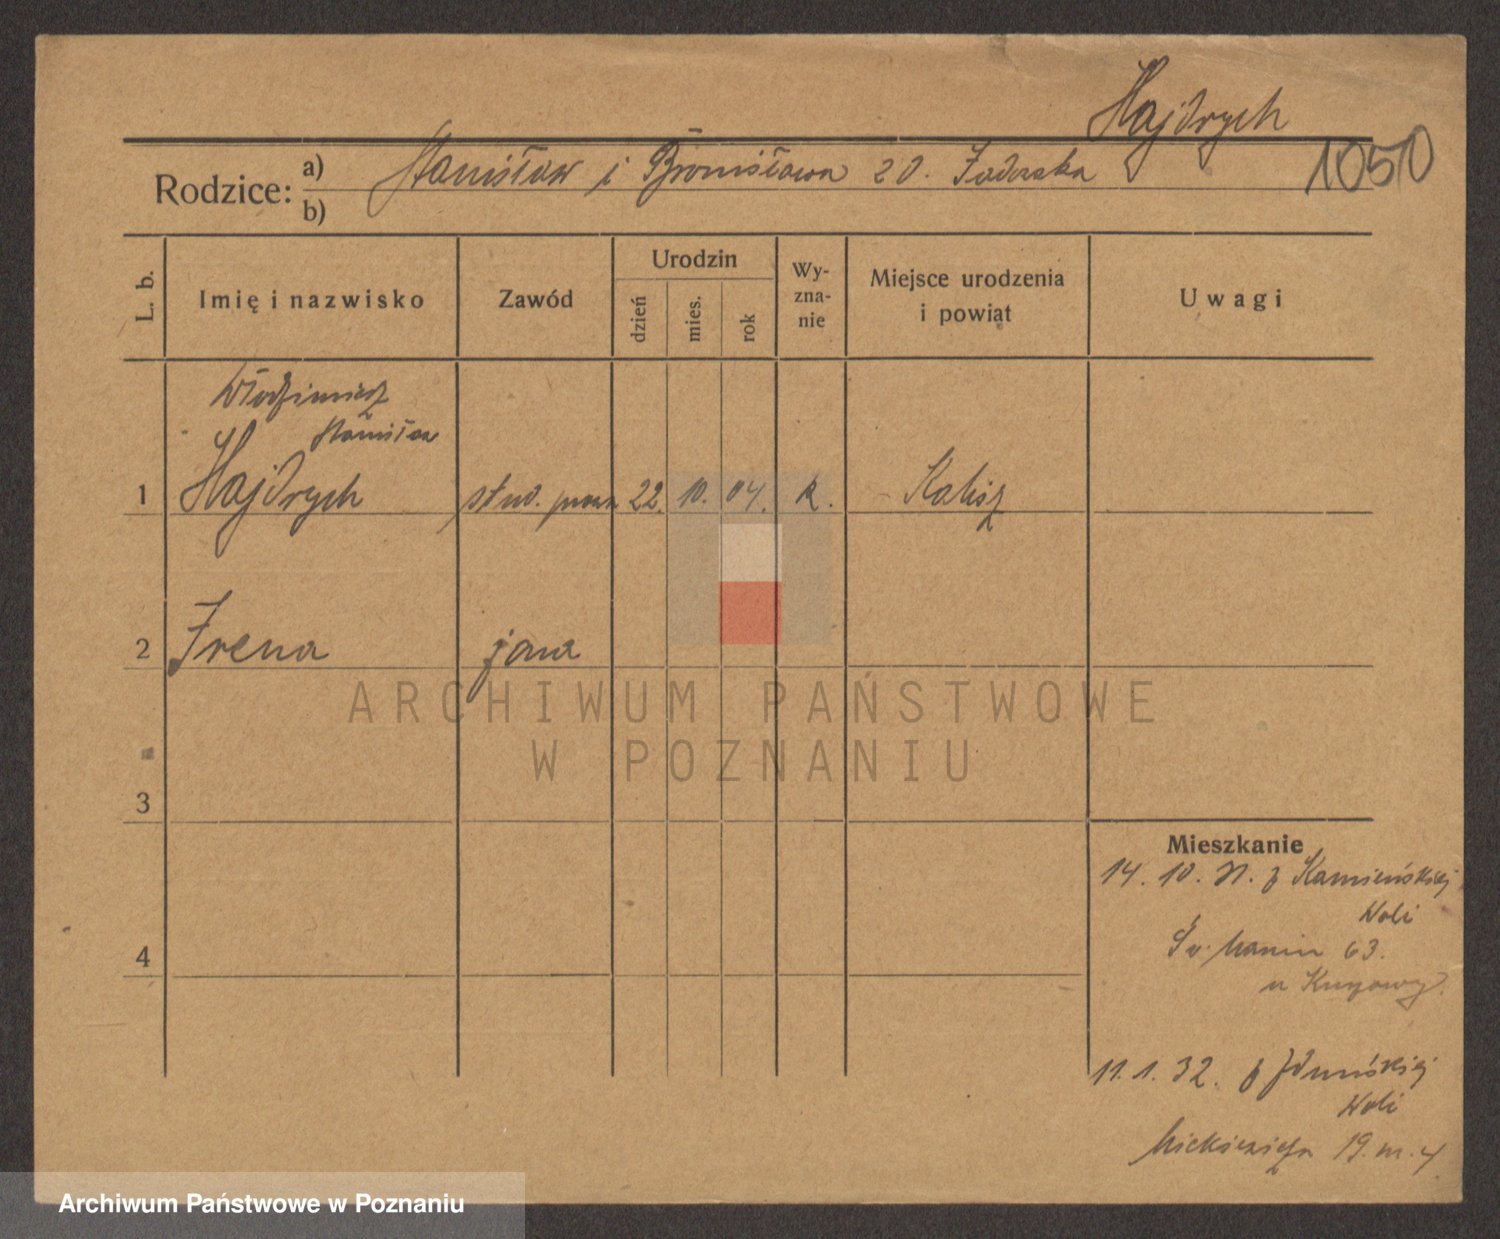 Hajdrych
1050
Rodzice: a) Stanisław i Bronisława zd.
b)
L. b.
Imię i nazwisko
Zawód
Urodzin
dzień
mies.
rok
Wy-
zna-
nie
Miejsce urodzenia
i powiat
Uwagi
Włodzimierz
Stanisław
1 Hajdrych stud. prawa 22. 10. 04. k. Kalisz
2 Irena
ARCHIWUM PAŃSTWOWE
W POZNANIU
3
Mieszkanie
14. 10. z Kamieńskiej
Woli
Św. Marcin 63.
4
u
11. 1. 32. z Zduńskiej
Woli
Mickiewicza 19. m. 4
Archiwum Państwowe w Poznaniu